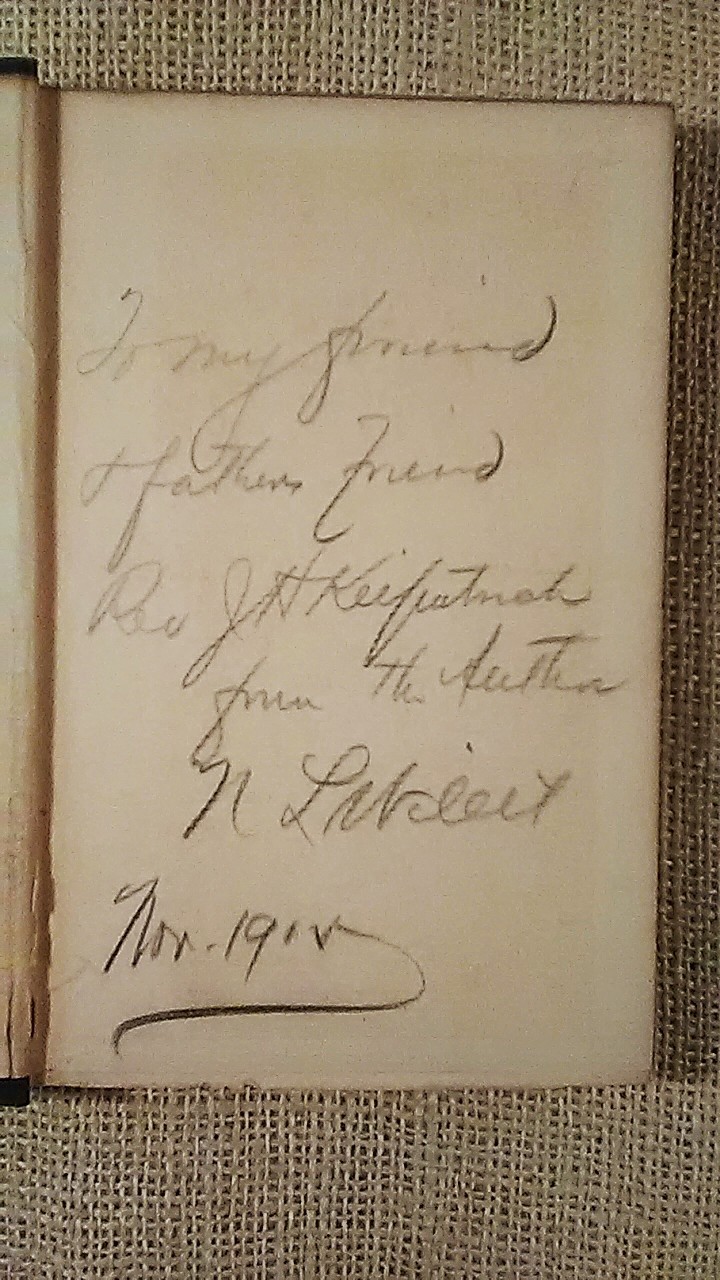 To my friend
& fathers friend
Rev J H Kilpatrick
from the Author
N L Willet
Nov. 1912